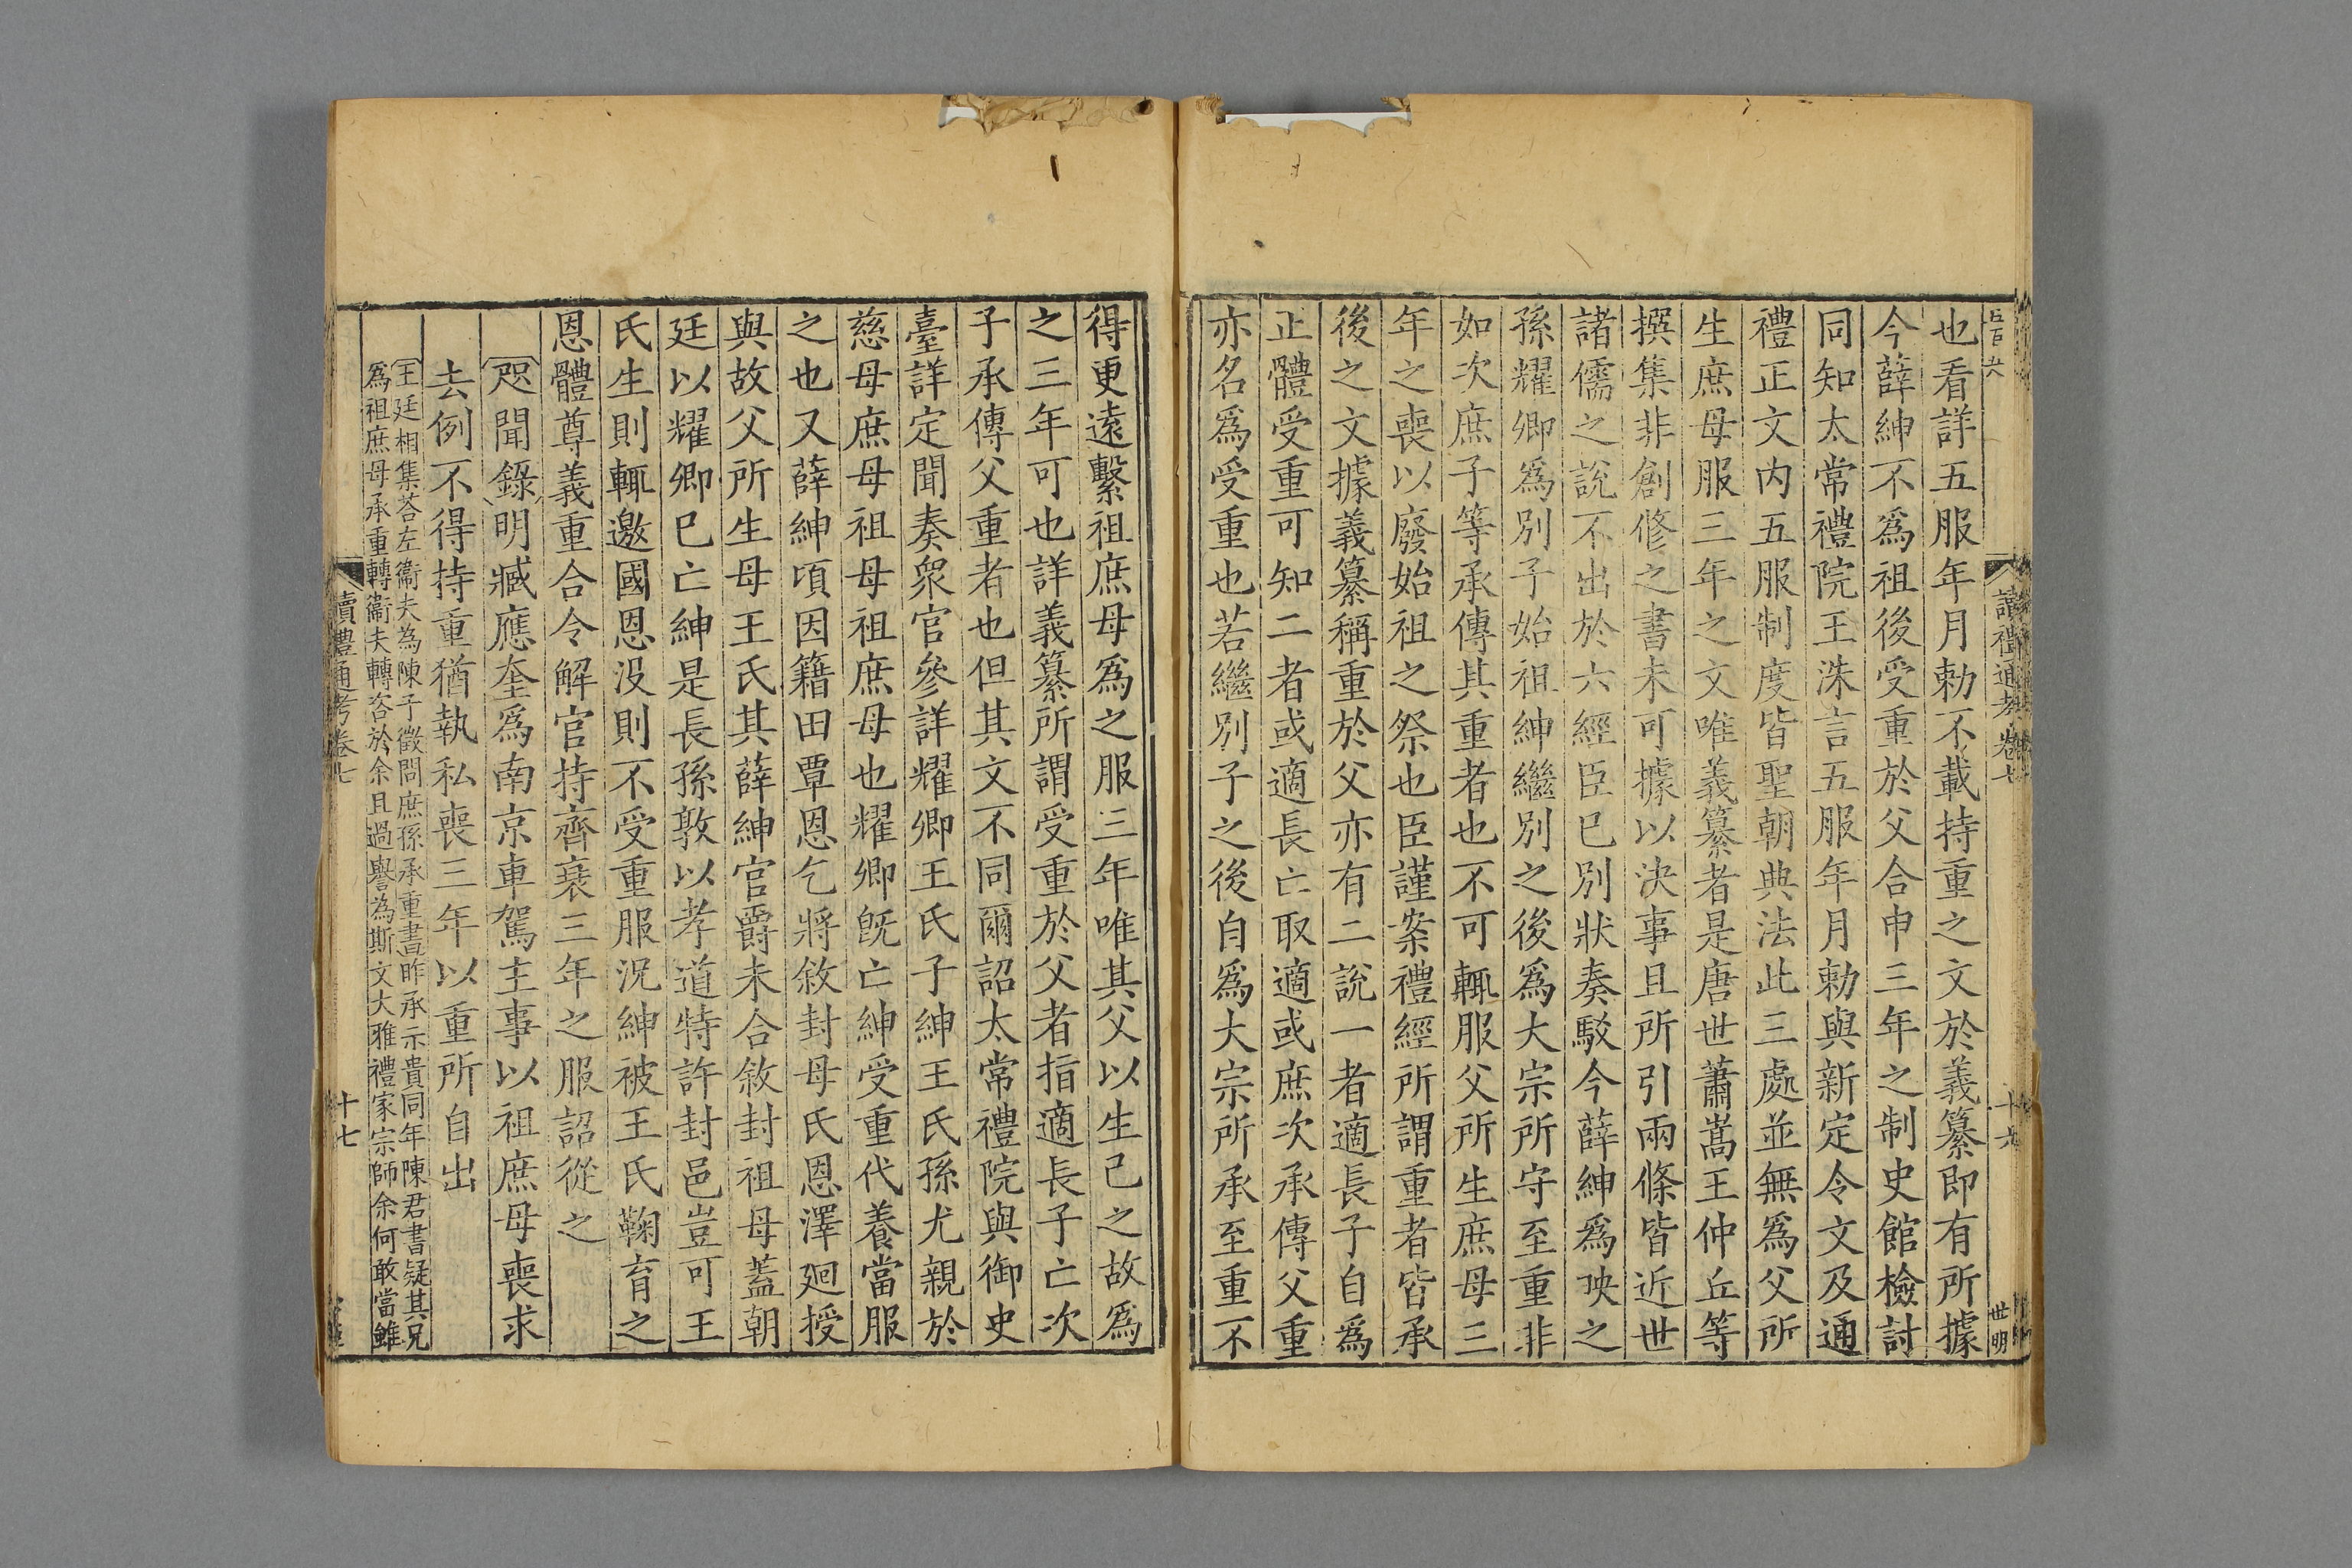 五百六
讀禮通考卷七
十六
世明
也看詳五服年月勅不載持重之文於義纂即有所據
今薛紳不爲祖後受重於父合申三年之制史館檢討
同知太常禮院王洙言五服年月勅與新定令文及通
禮正文内五服制度皆聖朝典法此三處並無爲父所
生庶母服三年之文唯義纂者是唐世蕭嵩王仲丘等
撰集非創修之書未可據以決事且所引兩條皆近世
諸儒之說不出於六經臣已別狀奏駁今薛紳爲映之
孫耀卿爲別子始祖紳繼別之後爲大宗所守至重非
如次庶子等承傳其重者也不可輒服父所生庶母三
年之喪以廢始祖之祭也臣謹案禮經所謂重者皆承
後之文據義纂稱重於父亦有二說一者適長子自爲
正體受重可知二者或適長亡取適或庶次承傳父重
亦名爲受重也若繼別子之後自爲大宗所承至重不
得更遠繫祖庶母爲之服三年唯其父以生己之故爲
之三年可也詳義纂所謂受重於父者指適長子亡次
子承傳父重者也但其文不同爾詔太常禮院與御史
臺詳定聞奏衆官參詳耀卿王氏子紳王氏孫尤親於
慈母庶母祖母祖庶母也耀卿旣亡紳受重代養當服
之也又薛紳頃因籍田覃恩乞將敘封母氏恩澤廻授
與故父所生母王氏其薛紳官爵未合敘封祖母蓋朝
廷以耀卿已亡紳是長孫敦以孝道特許封邑豈可王
氏生則輒邀國恩沒則不受重服況紳被王氏鞠育之
恩體尊義重合令解官持齊衰三年之服詔從之
咫聞錄明臧應奎爲南京車駕主事以祖庶母喪求
去例不得持重猶執私喪三年以重所自出
王廷相集荅左衞夫為陳子徵問庶孫承重書昨承示貴同年陳君書疑其兄
爲祖庶母承重轉衞夫轉咨於余且過譽為斯文大雅禮家宗師余何敢當雖
讀禮通考卷七
十七